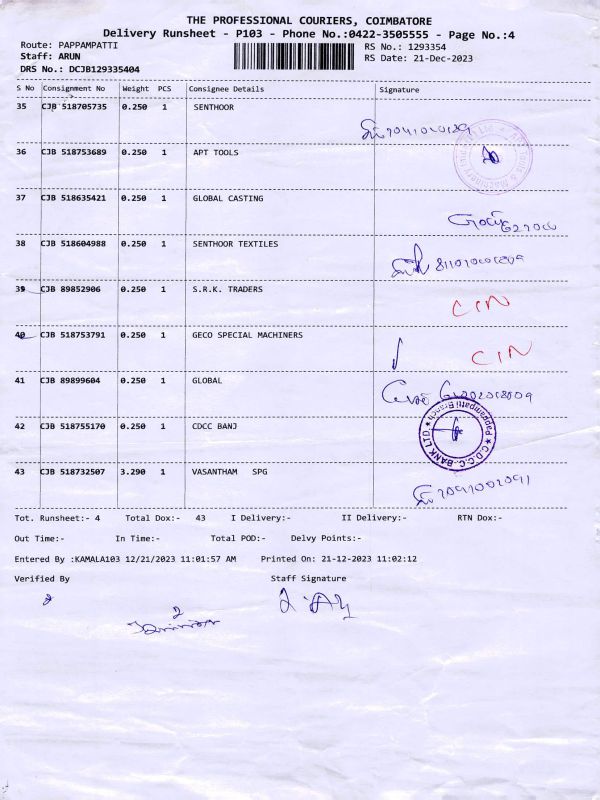 THE PROFESSIONAL COURIERS, COIMBATORE
Delivery Runsheet - P103 - Phone No.:0422-3505555 - Page No.:4
Route: PAPPAMPATTI RS No.: 1293354
Staff: ARUN RS Date: 21-Dec-2023
DRS No.: DCJB129335404
S No Consignment No Weight PCS Consignee Details Signature
35 CJB 518705735 0.250 1 SENTHOOR
36 CJB 518753689 0.250 1 APT TOOLS
37 CJB 518635421 0.250 1 GLOBAL CASTING
38 CJB 518604988 0.250 1 SENTHOOR TEXTILES
39 CJB 89852906 0.250 1 S.R.K. TRADERS CIN
40 CJB 518753791 0.250 1 GECO SPECIAL MACHINERS CIN
41 CJB 89899604 0.250 1 GLOBAL
42 CJB 518755170 0.250 1 CDCC BANJ
C.D.C.C. BANK LTD. Pappampatti Branch
43 CJB 518732507 3.290 1 VASANTHAM SPG
Tot. Runsheet:- 4 Total Dox:- 43 I Delivery:- II Delivery:- RTN Dox:-
Out Time:- In Time:- Total POD:- Delvy Points:-
Entered By :KAMALA103 12/21/2023 11:01:57 AM Printed On: 21-12-2023 11:02:12
Verified By Staff Signature